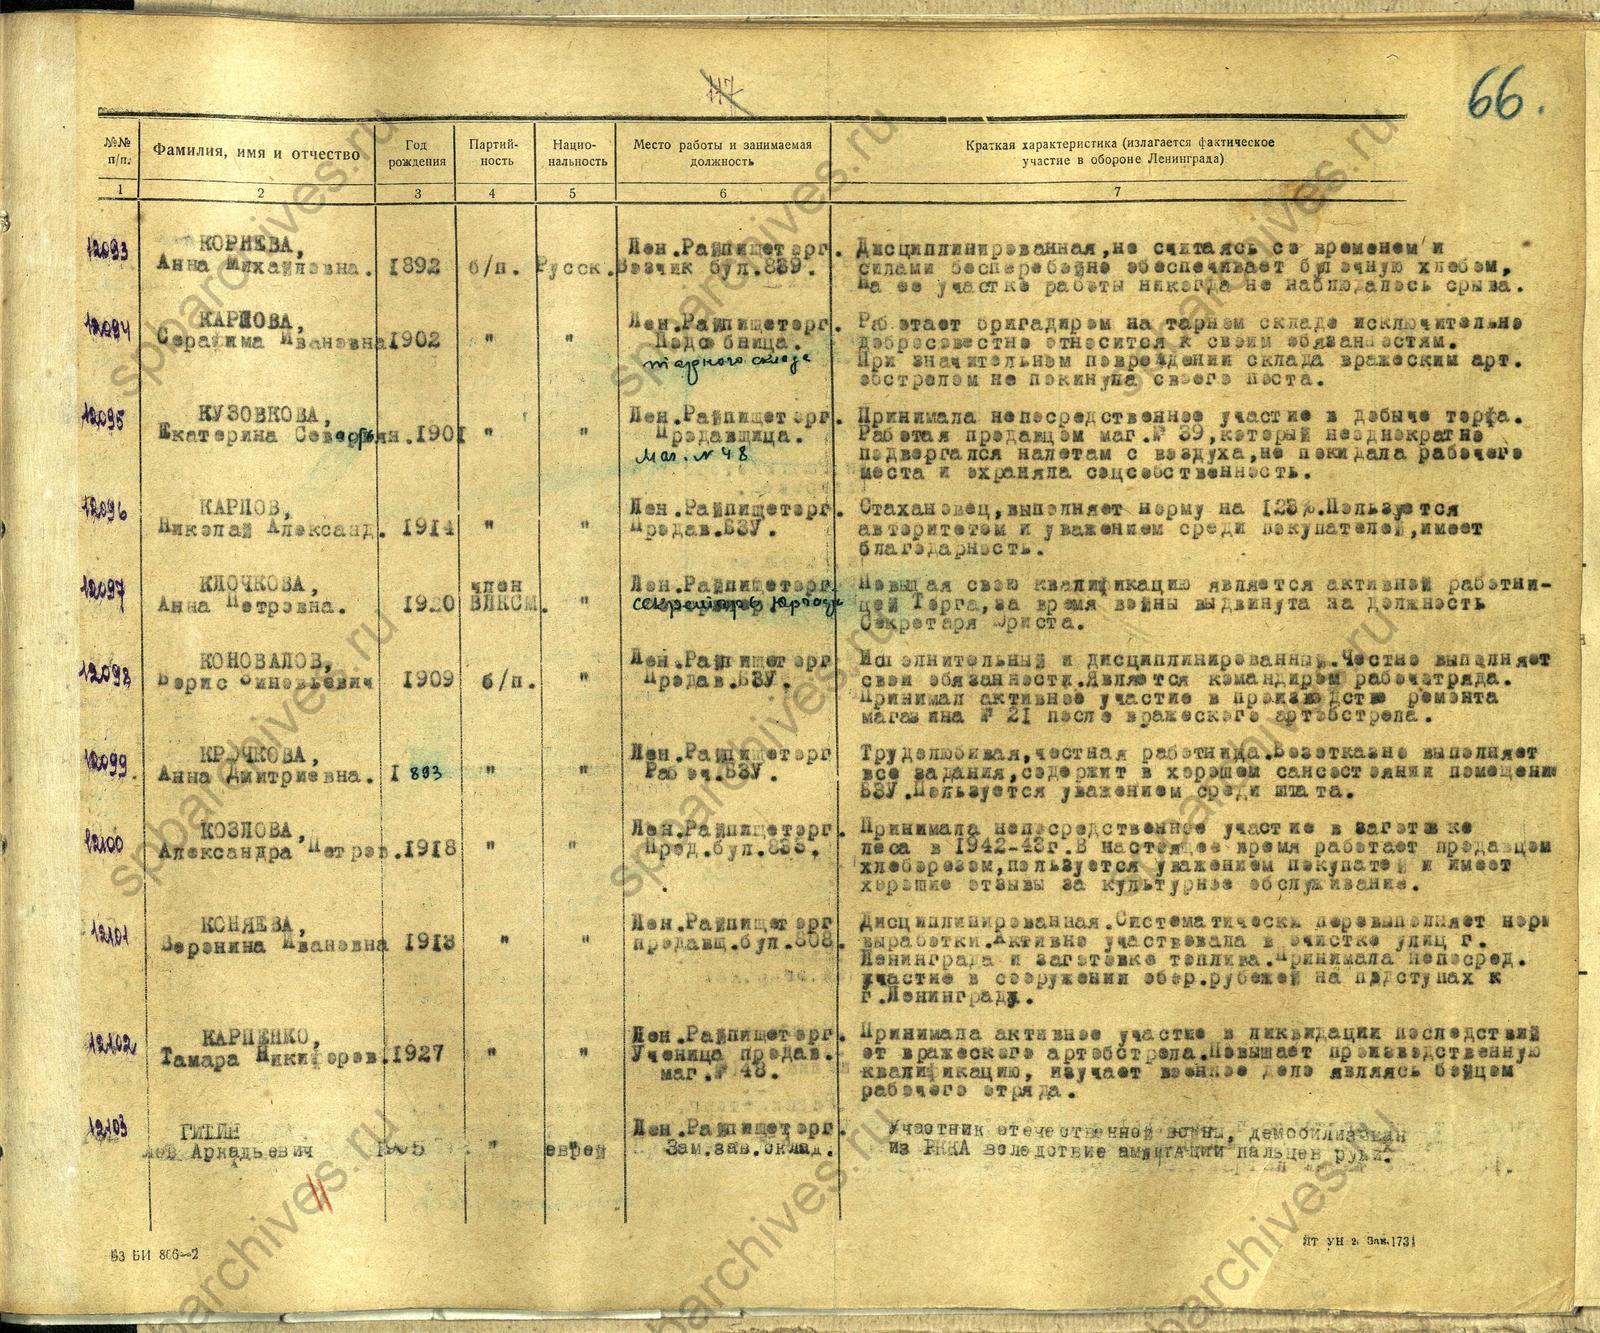 117
66.
№№ п/п. Фамилия, имя и отчество Год рождения Партий-ность Нацио-нальность Место работы и занимаемая должность Краткая характеристика (излагается фактическое участие в обороне Ленинграда)
1 2 3 4 5 6 7
12093 КОРНЕВА, Лен.Райпищеторг. Дисциплинированная,не считаясь со временем и
Анна Михайловна. 1892 б/п. Русск. Возчик бул.839. силами бесперебойно обеспечивает булочную хлебом,
На ее участке работы никогда не наблюдалось срыва.
12094 КАРПОВА, Лен.Райпищеторг. Работает бригадиром на тарном складе исключительно
Серафима Ивановна 1902 " " Подсобница. добросовестно относится к своим обязанностям.
тарного склада При значительном повреждении склада вражеским арт.
обстрелом не покинула своего поста.
12095 КУЗОВКОВА, Лен.Райпищеторг. Принимала непосредственное участие в добыче торфа.
Екатерина Северьян. 1901 " " Продавщица. Работая продавцом маг.№ 39,который неоднократно
Маг. № 48 подвергался налетам с воздуха,не покидала рабочего
места и охраняла соцсобственность.
12096 КАРПОВ, Лен.Райпищеторг. Стахановец,выполняет норму на 123%.Пользуется
Николай Александ. 1914 " " Продав.БЗУ. авторитетом и уважением среди покупателей,имеет
благодарность.
12097 КЛОЧКОВА, член Лен.Райпищеторг. Повышая свою квалификацию является активной работни-
Анна Петровна. 1920 ВЛКСМ. " секретарь цей Торга,за время войны выдвинута на должность
Секретаря Юриста.
12098 КОНОВАЛОВ, Лен.Райпищеторг Исполнительный и дисциплинированный.Честно выполняет
Борис Зиновьевич 1909 б/п. " Продав.БЗУ. свои обязанности.Является командиром рабочотряда.
Принимал активное участие в производстве ремонта
магазина № 21 после вражеского артобстрела.
12099. КРЮЧКОВА, Лен.Райпищеторг Трудолюбивая,честная работница.Безотказно выполняет
Анна Дмитриевна. 1893 " " Рабоч.БЗУ. все задания,содержит в хорошем сансостоянии помещение
БЗУ.Пользуется уважением среди штата.
12100 КОЗЛОВА, Лен.Райпищеторг. Принимала непосредственное участие в заготовке
Александра Петров. 1918 " " Прод.бул. леса в 1942-43г.В настоящее время работает продавцом
хлеборезом,пользуется уважением покупателей и имеет
хорошие отзывы за культурное обслуживание.
12101 КОНЯЕВА, Лен.Райпищеторг Дисциплинированная.Систематически перевыполняет норм
Веронина Ивановна 1913 " " продавщ.бул. выработки.Активно участвовала в очистке улиц г.
Ленинграда и заготовке топлива.Принимала непосред.
участие в сооружении обор.рубежей на подступах к
г.Ленинграду.
12102 КАРПЕНКО, Лен.Райпищеторг. Принимала активное участие в ликвидации последствий
Тамара Никифоров. 1927 " " Ученица продав. от вражеского артобстрела.Повышает производственную
маг.№ 48. квалификацию, изучает военное дело являясь бойцом
рабочего отряда.
12103 ГИТИН Лен.Райпищеторг. Участник отечественной войны, демобилизован
Лев Аркадьевич 1905 " еврей Зам.зав.склад. из РККА вследствие ампутации пальцев руки.
11
Бз БИ 866—2
ЯТ УН 2. Зак.1731
spbarchives.ru